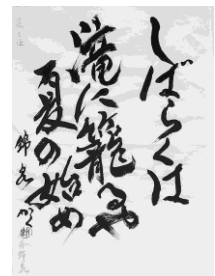 しばらくは
瀧に籠るや
夏の始め